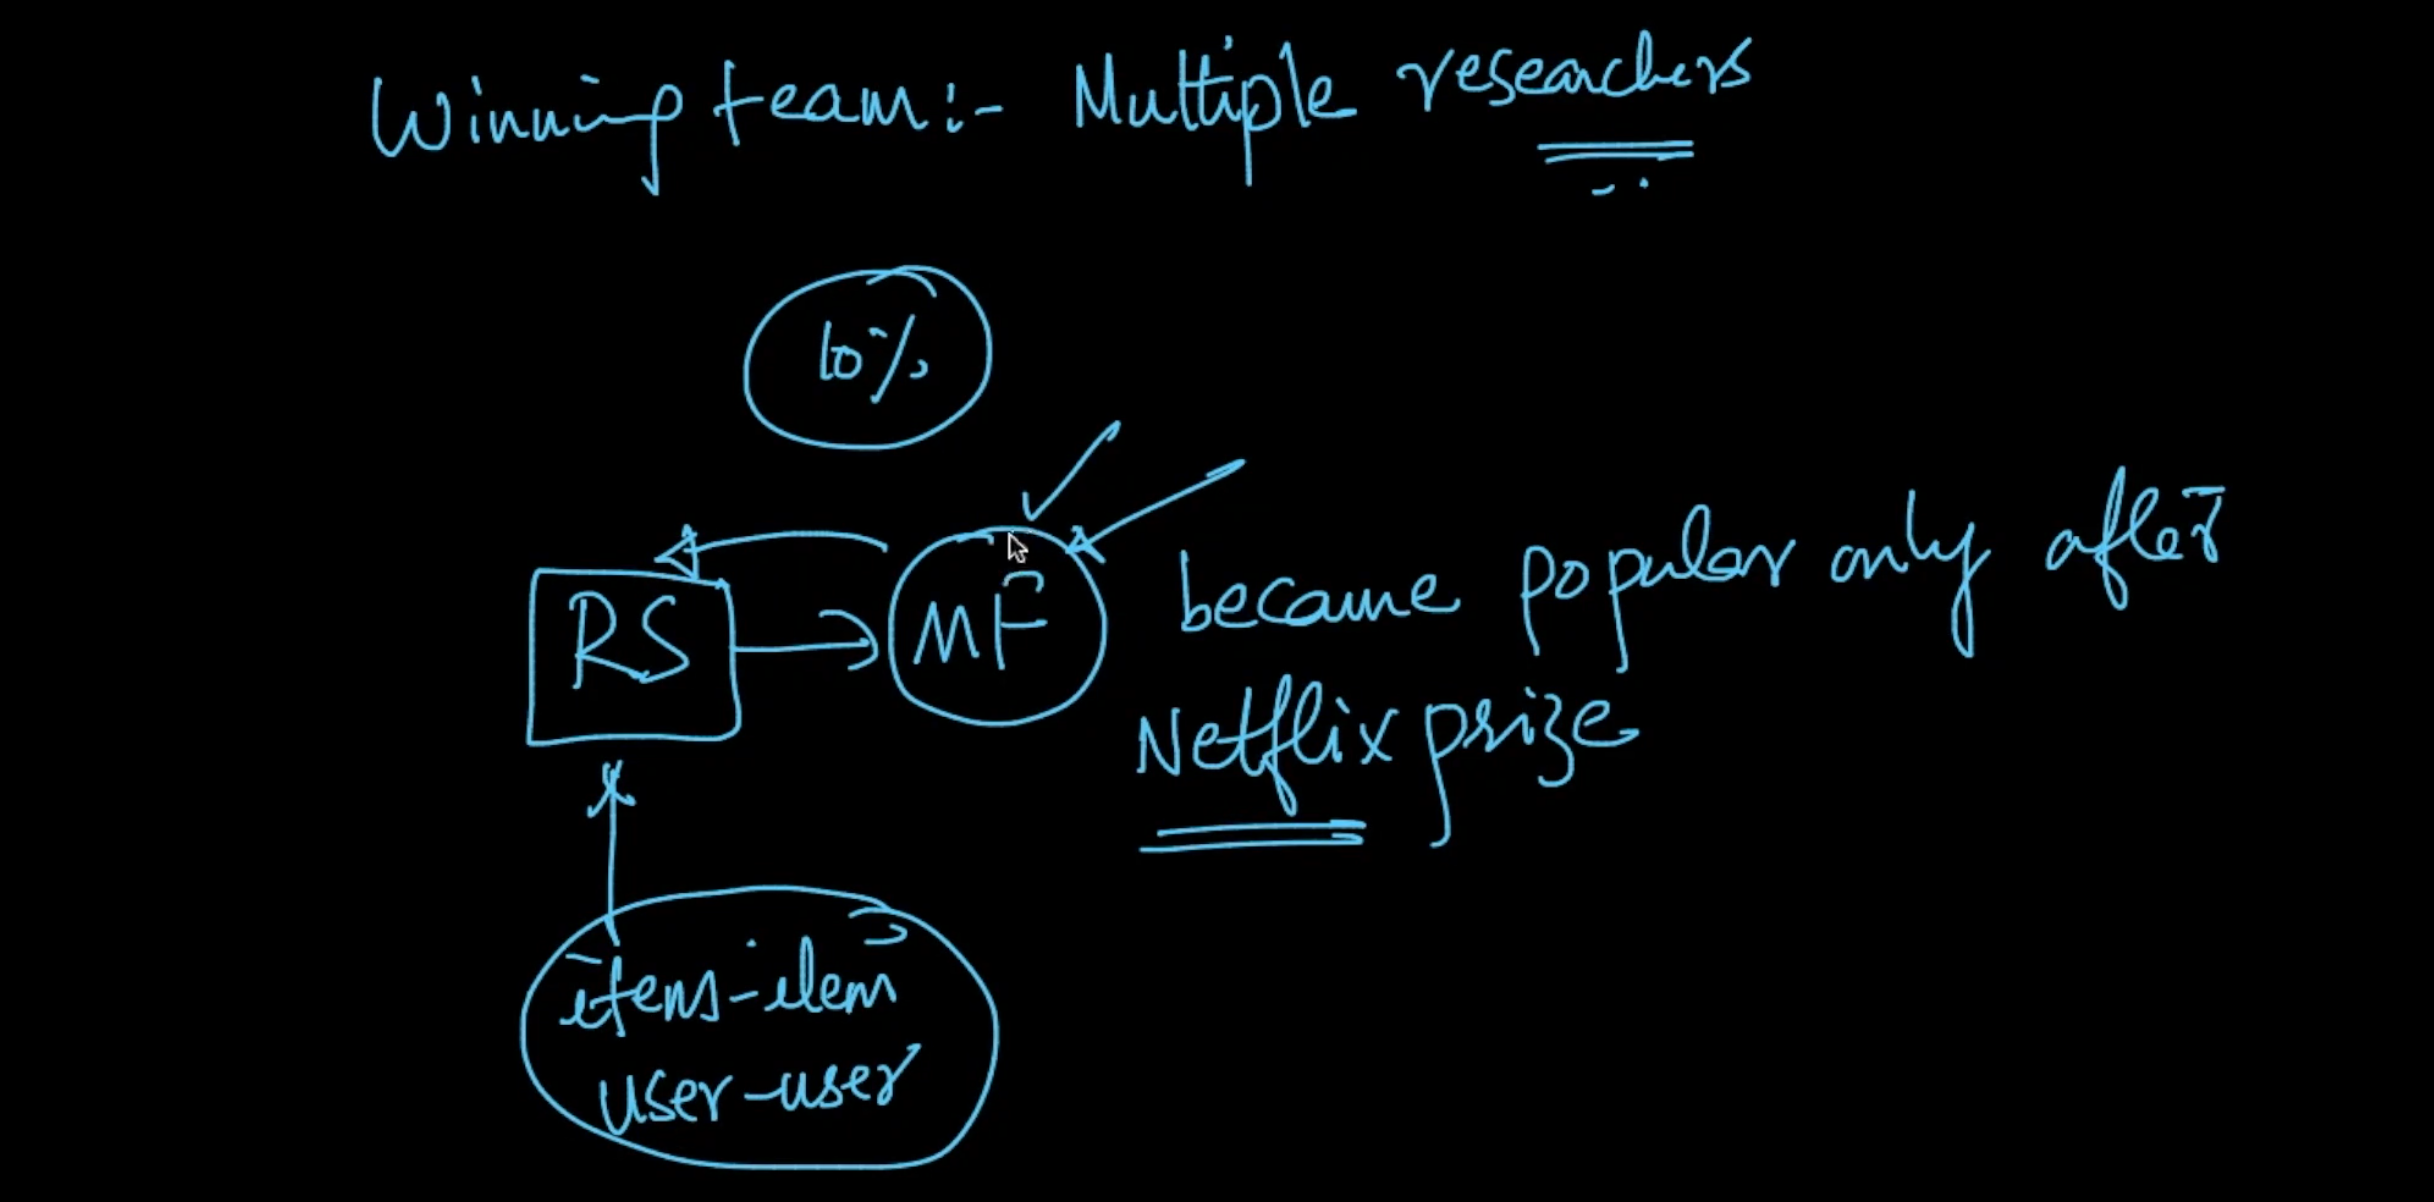 Winning team:- Multiple researchers
10%
RS MF became popular only after
Netflix prize
item-item
user-user